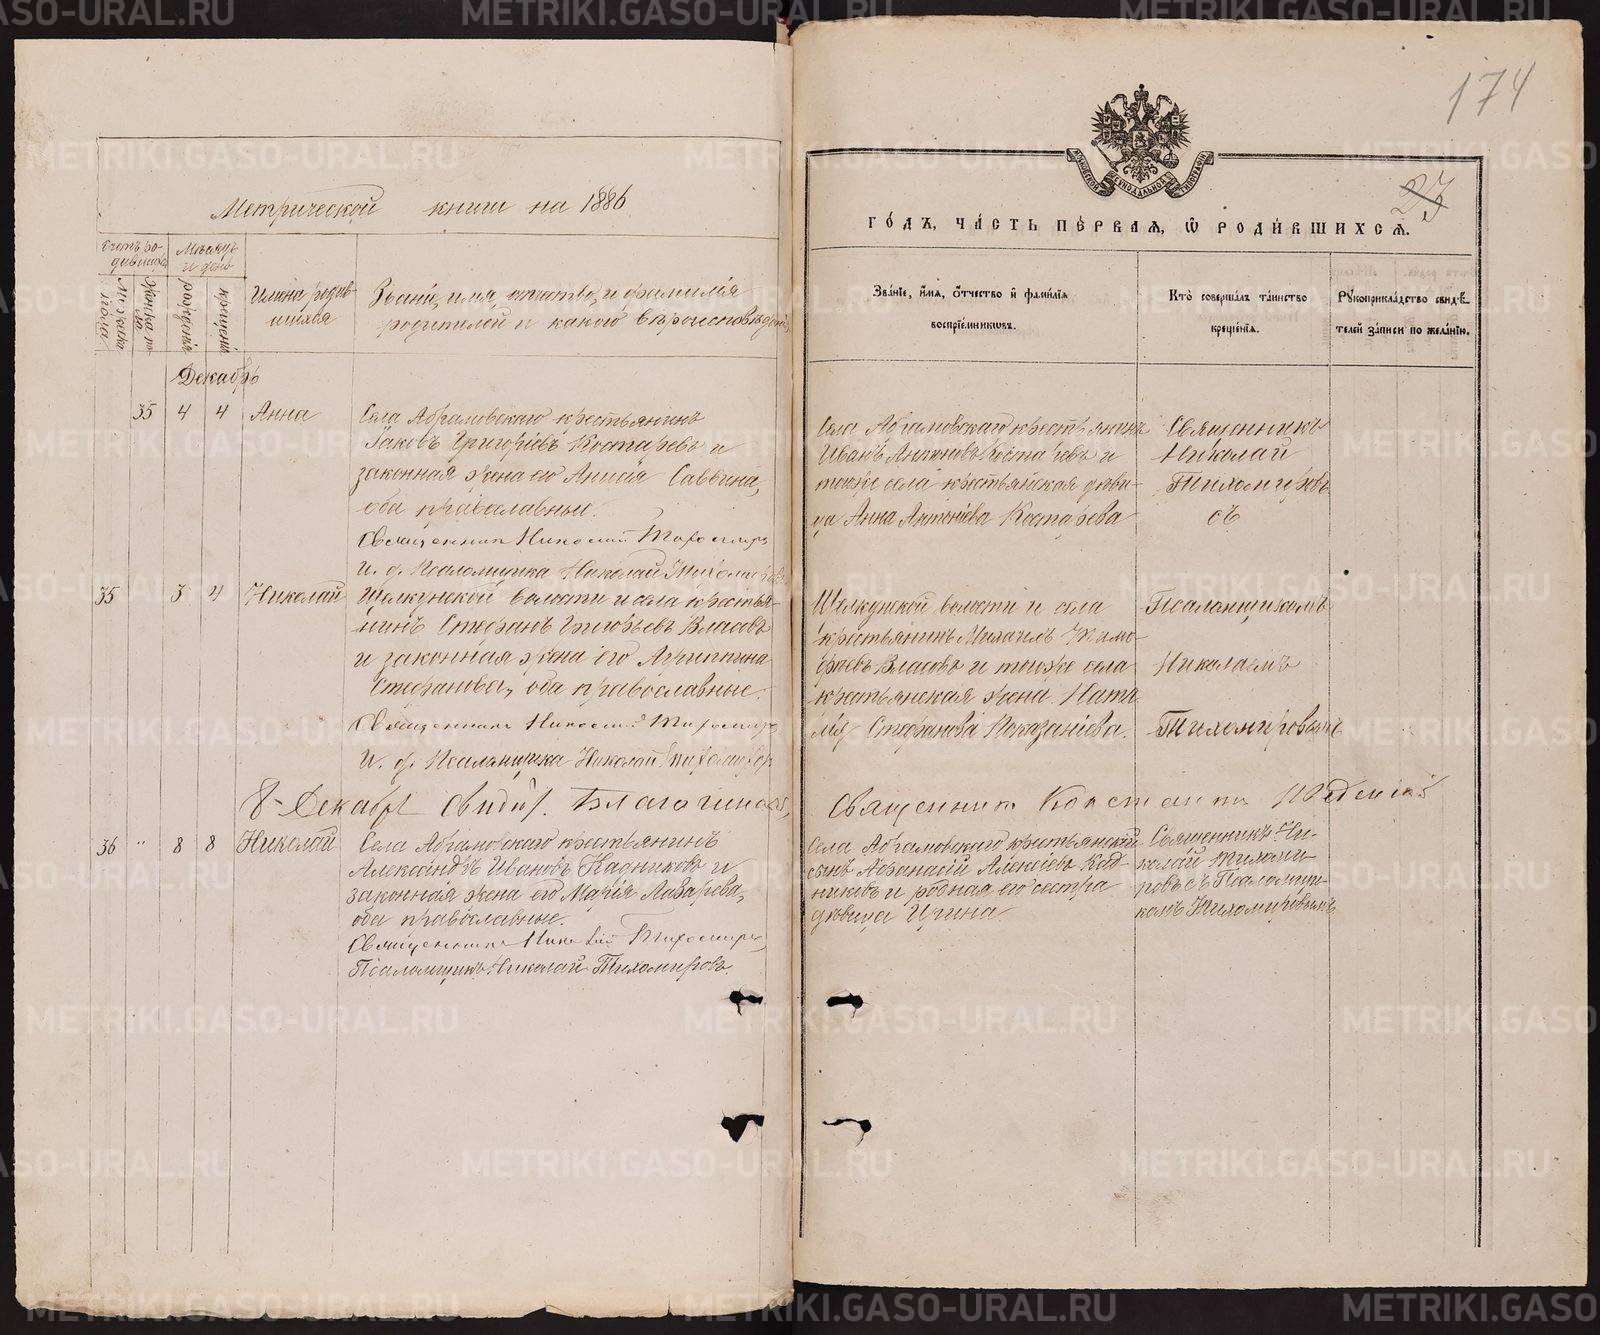 174
23
Метрической книги на 1886
годъ, часть первая, ѿ родившихся.
Счетъ ро-
дившихъ
Мѣсяцъ
и день
Мужска
Женска по
рожденія
крещенія
Имена родив-
шихся
Званіе, имя, отчество, и фамилія
родителей и какого вѣроисповѣданія
Званіе, имя, отчество и фамилія
воспріемниковъ.
Кто совершалъ таинство
крещенія.
Рукоприкладство свидѣ-
телей записи по желанію.
Декабрь
35 4 4 Анна
Села Абрамовскаго крестьянинъ
Іаковъ Григорьевъ Костаревъ и
законная жена его Анисія Саввина,
оба православные.
Священникъ Николай Тихомировъ
И. д. Псаломщика Николай Тихомировъ
Села Абрамовскаго крестьянинъ
Иванъ Антоновъ Костаревъ и
тогоже села крестьянская дѣви-
ца Анна Антоніева Костарева
Священникъ
Николай
Тихомировъ
съ
35 3 4 Николай
Щелкунской волости и села крестья-
нинъ Стефанъ Григорьевъ Власовъ
и законная жена его Агриппина
Стефанова, оба православные.
Священникъ Николай Тихомировъ
И. д. Псаломщика Николай Тихомировъ
Щелкунской волости и села
крестьянинъ Михаилъ Тимо-
феевъ Власовъ и тогоже села
крестьянская жена Ната
лія Стефанова
Псаломщикомъ
Николаемъ
Тихомировымъ
8 Декабря свидѣт. Благочинный,
Священникъ Константинъ
36 " 8 8 Николай
Села Абрамовскаго крестьянинъ
Александръ Ивановъ Кадниковъ и
законная жена его Марія Лазарева,
оба православные.
Священникъ Николай Тихомировъ,
Псаломщикъ Николай Тихомировъ.
Села Абрамовскаго крестьянскій
сынъ Афанасій Алексіевъ Кад-
никовъ и родная его сестра
дѣвица Ирина
Священникъ Ни-
колай Тихоми-
ровъ съ Псаломщи-
комъ Тихомировымъ
METRIKI.GASO-URAL.RU